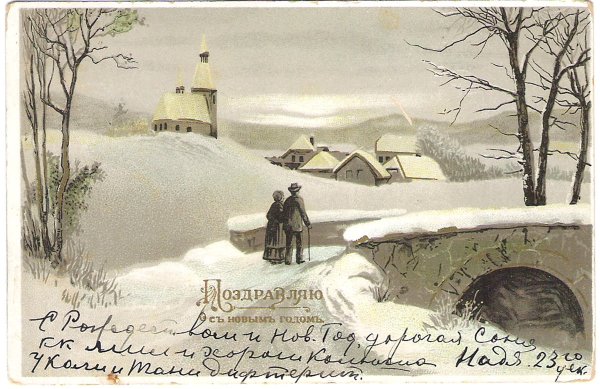 Поздравляю
съ новымъ годомъ.
С Рождеством и Нов. Год. дорогая Соня
Надя. 23го
У Коли и Тани дифтерит.
дек.